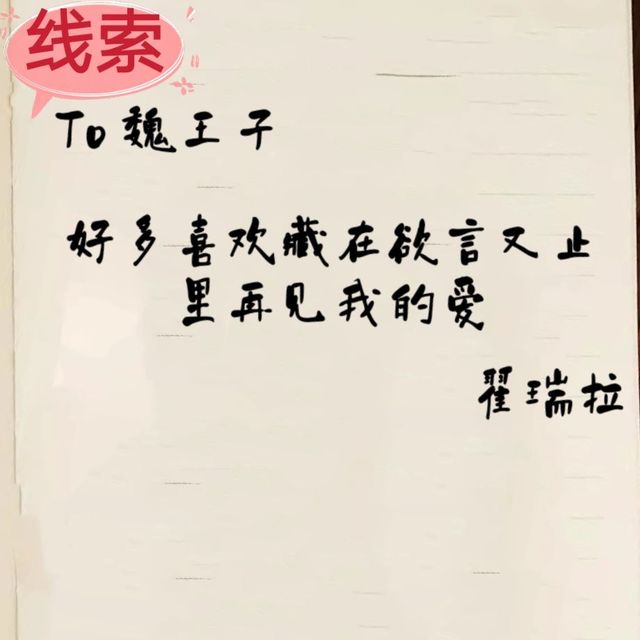 线索
To 魏王子
好多喜欢藏在欲言又止
里再见我的爱
翟瑞拉